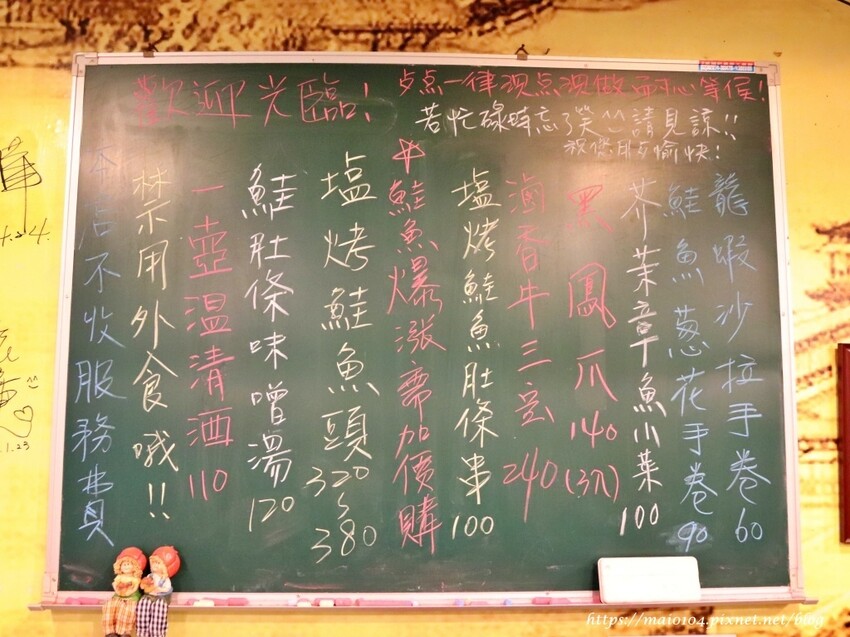 歡迎光臨!
点一律現点現做 耐心等候!
若忙碌時忘了笑^^請見諒!!
祝您用歺愉快!
龍蝦沙拉手卷60
鮭魚蔥花手卷90
芥茉章魚小菜100
黑鳳爪140(3爪)
滷香牛三宝240
塩烤鮭魚肚條串100
鮭魚爆漲需加價購
塩烤鮭魚頭320~380
鮭肚條味噌湯120
一壺温清酒110
禁用外食哦!!
本店不收服務費
https://maio104.pixnet.net/blog